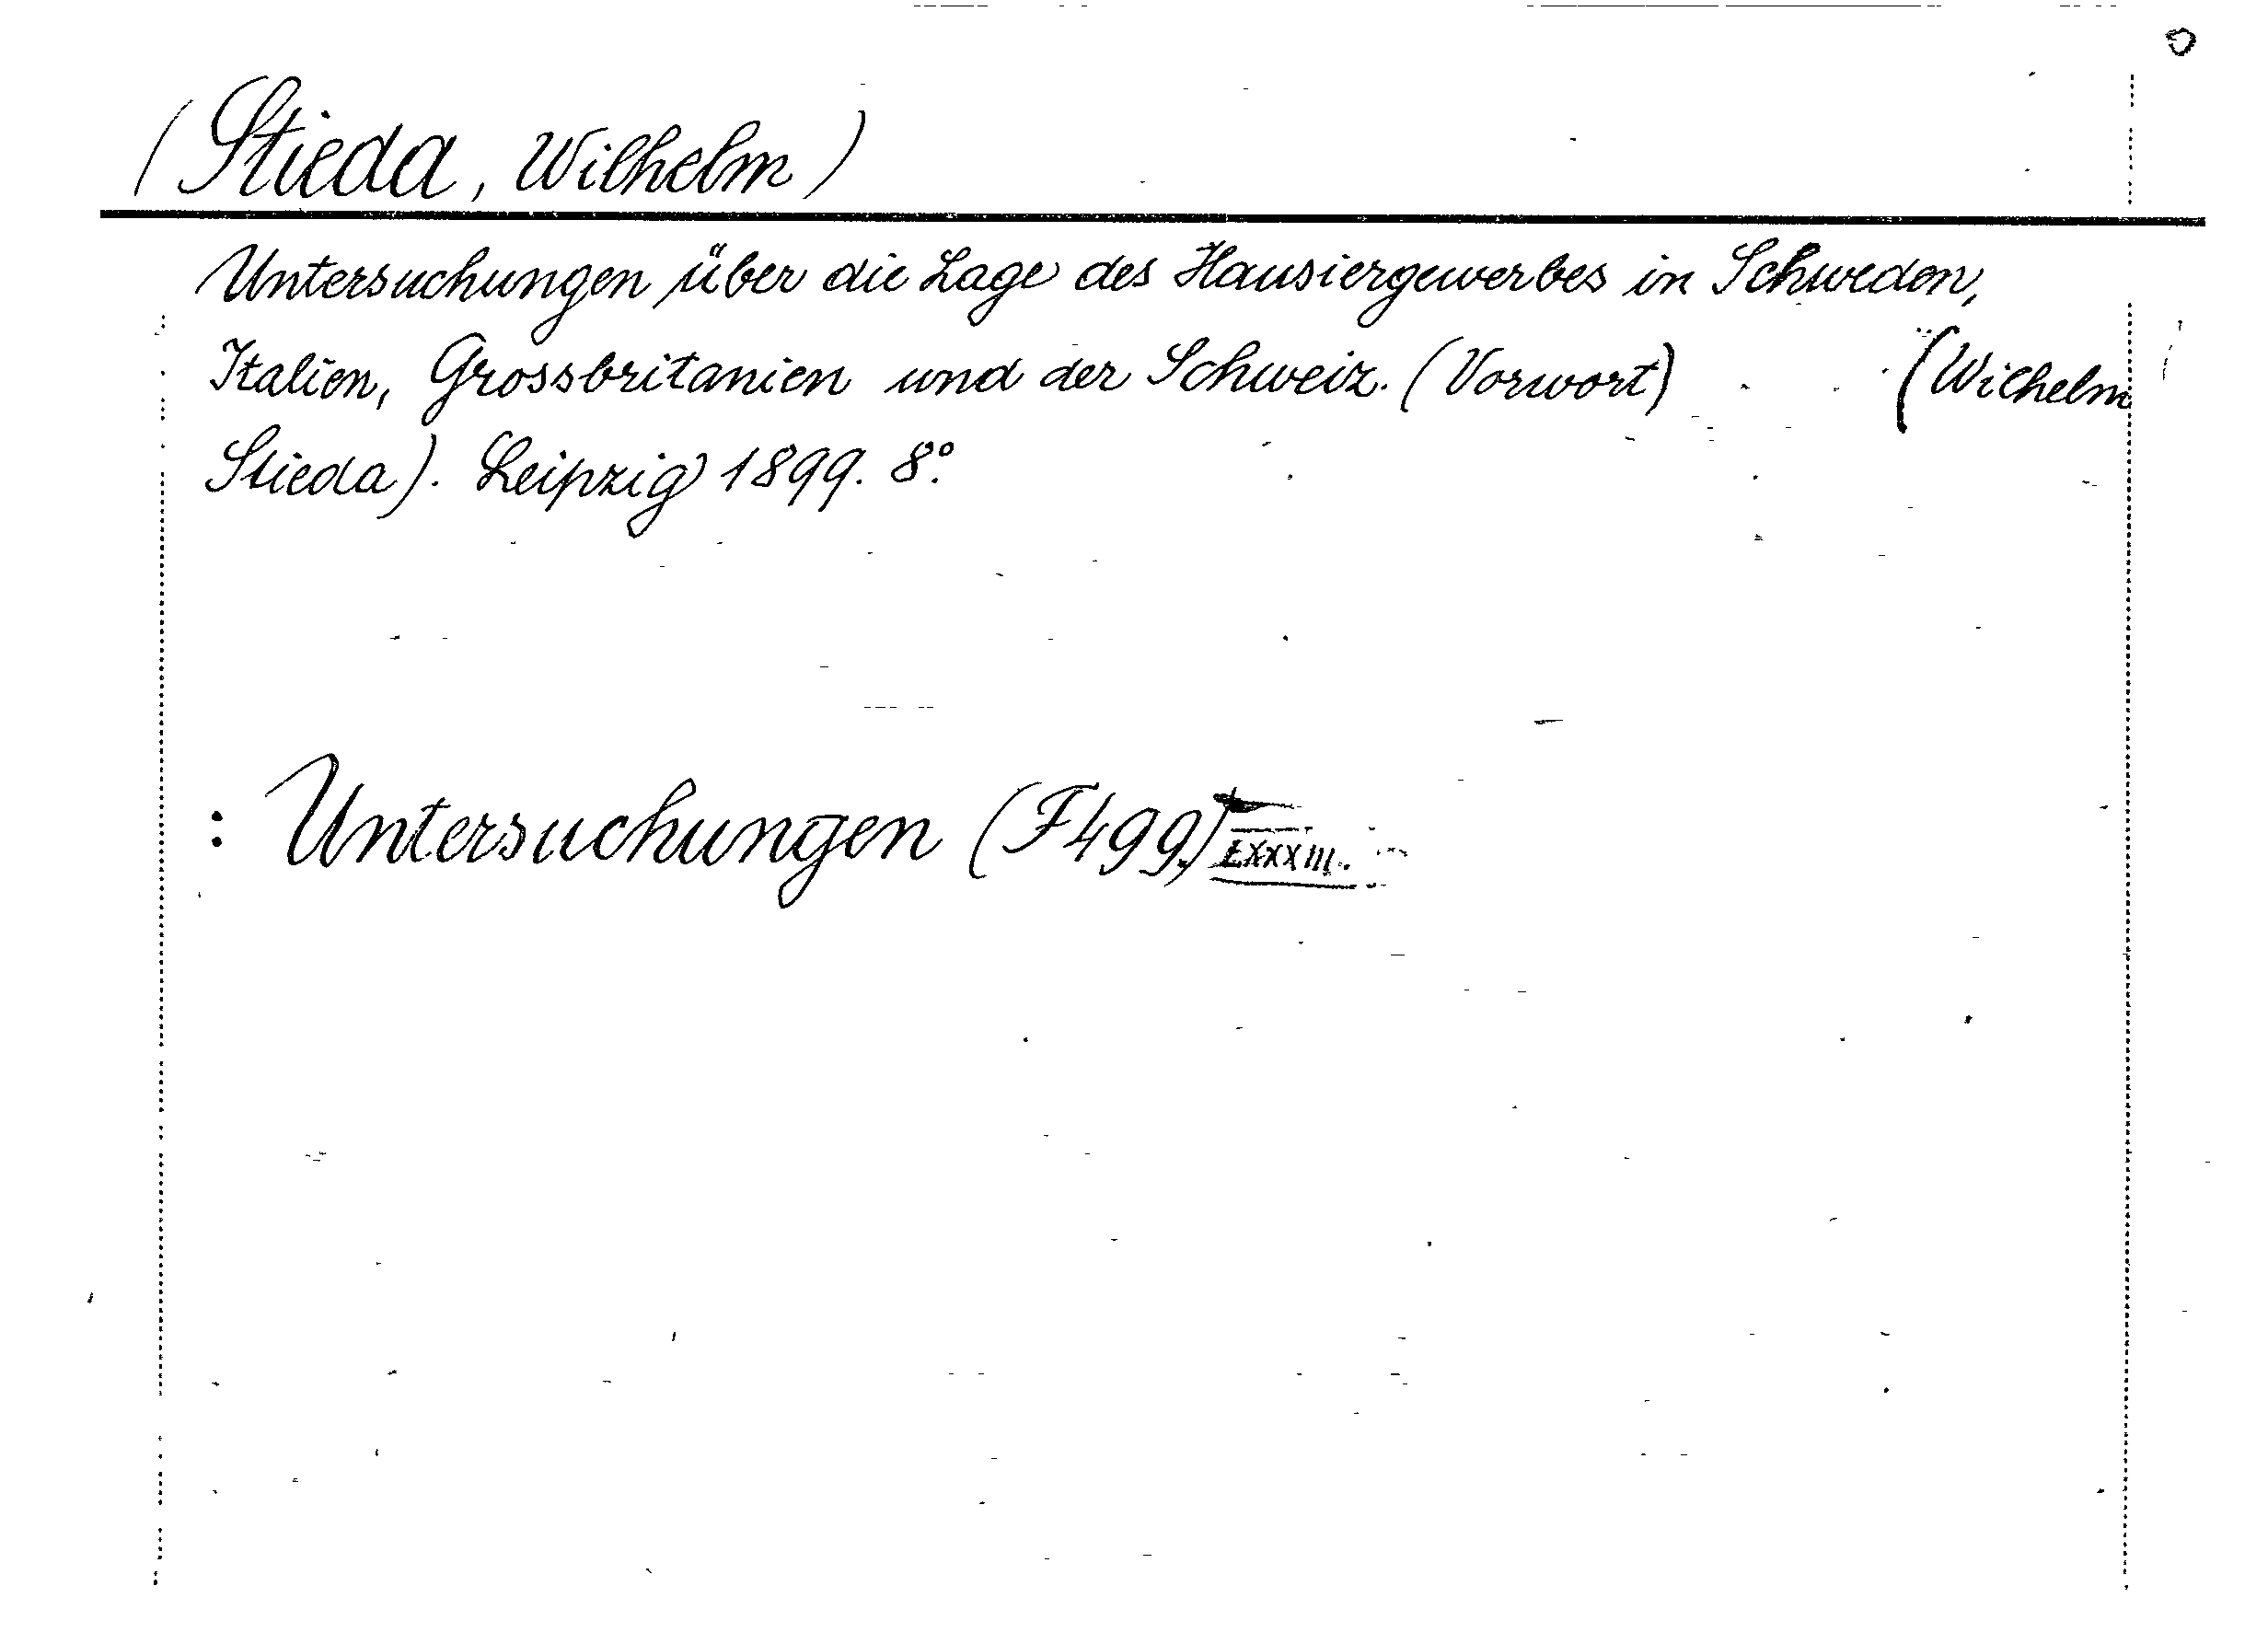 (Stieda, Wilhelm)
Untersuchungen über die Lage des Hausiergewerbes in Schweden,
Italien, Grossbritanien und der Schweiz. (Vorwort) (Wilhelm
Stieda). Leipzig 1899. 8°.
: Untersuchungen (F499.) LXXXIII.